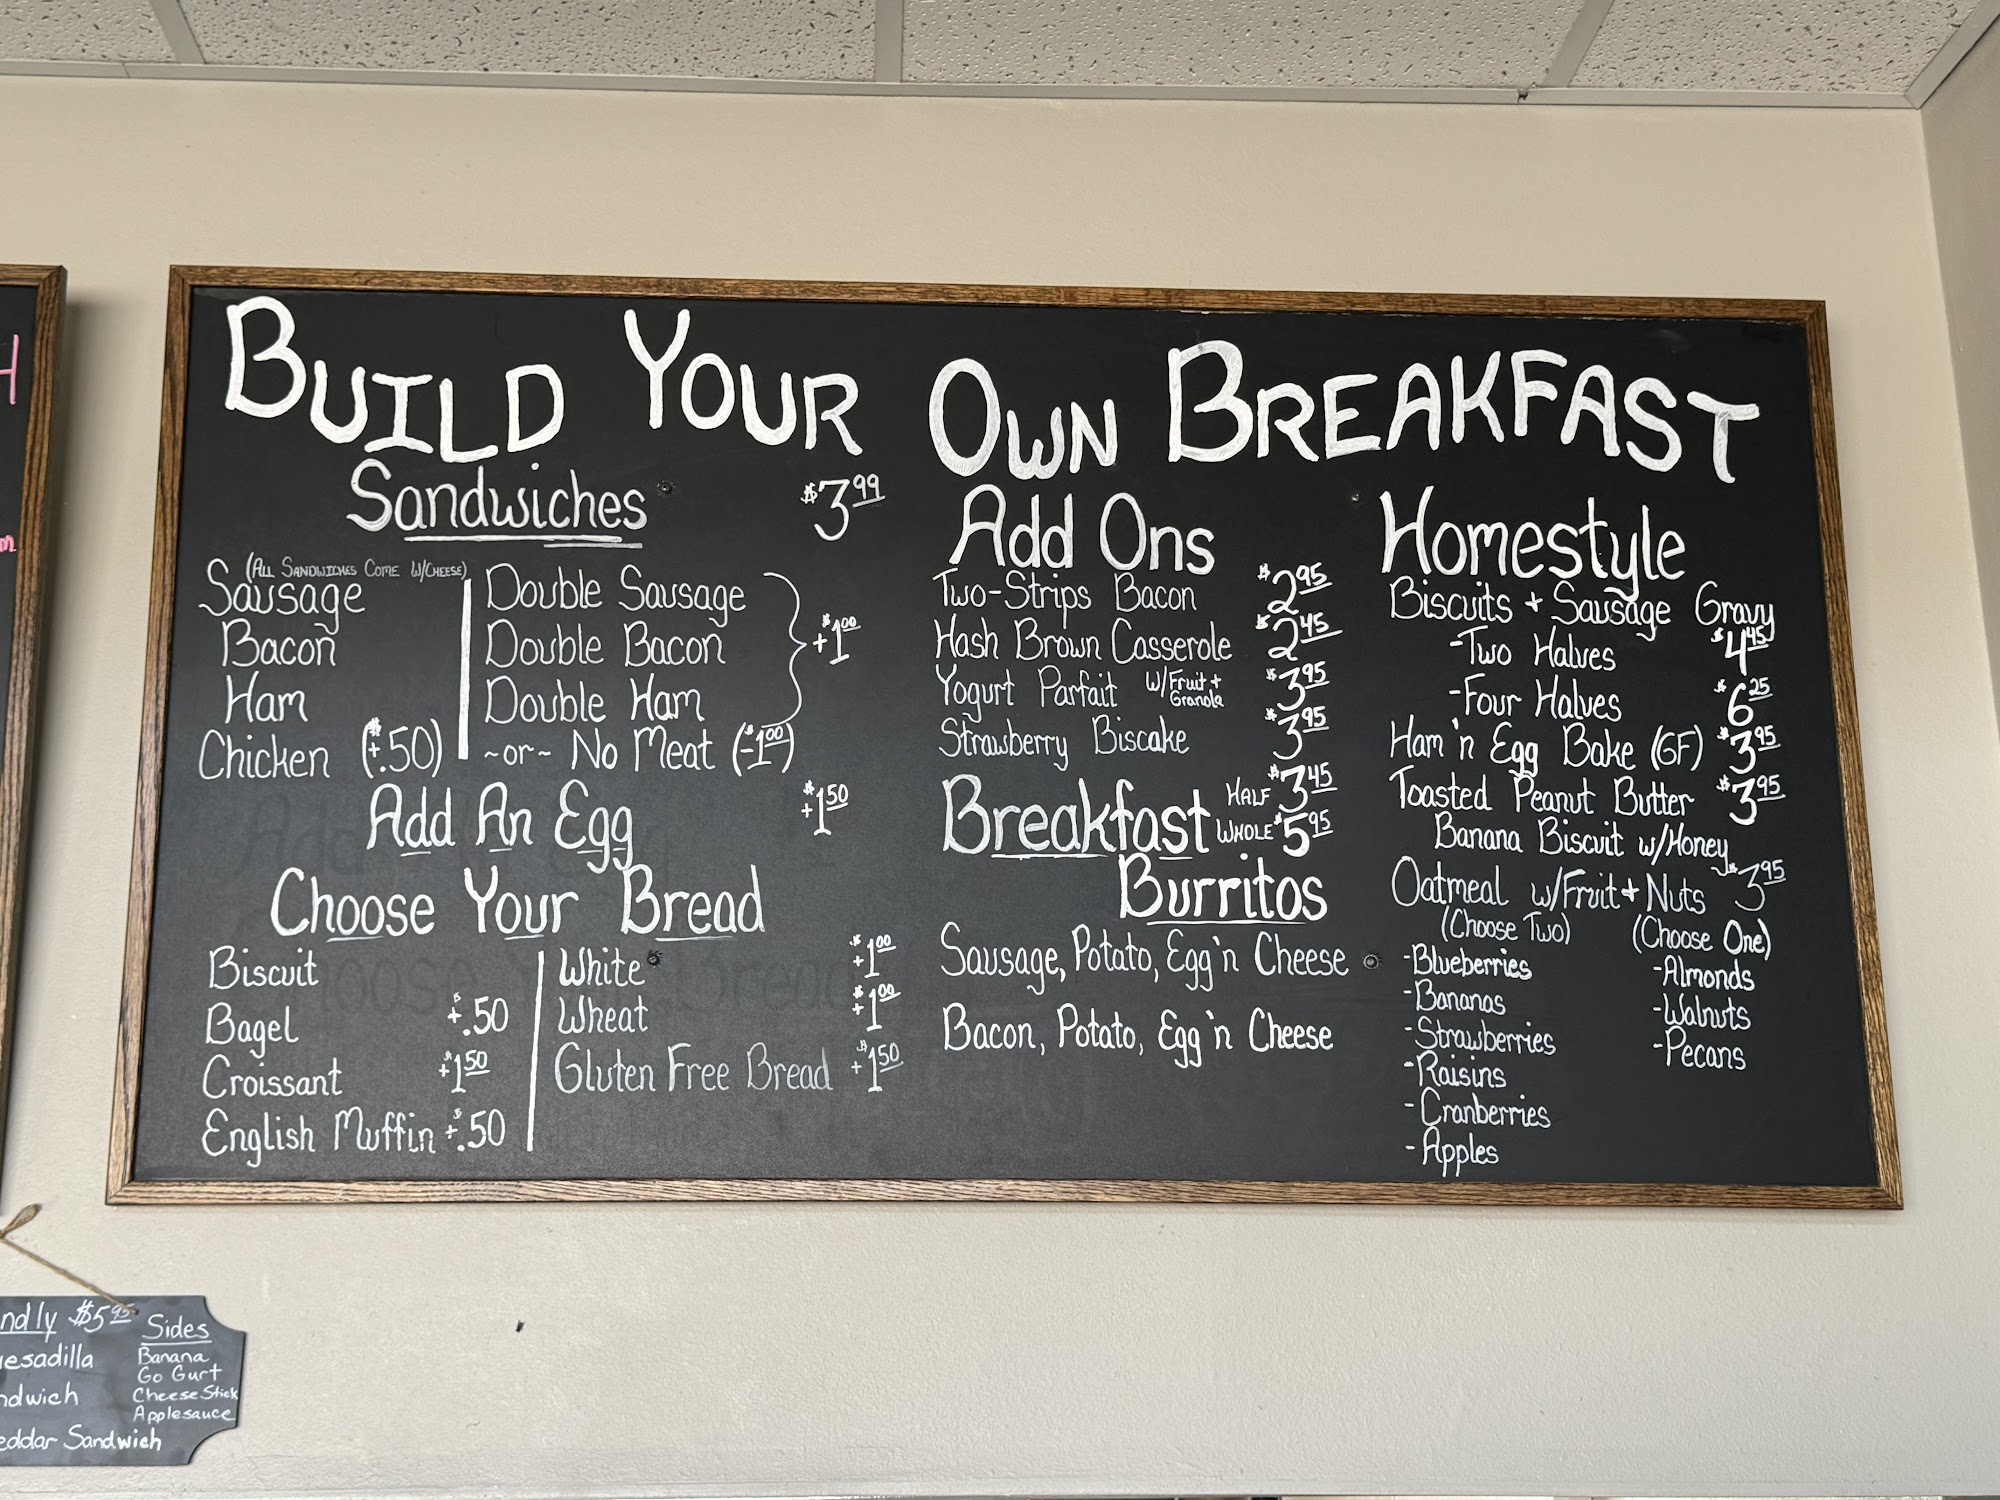 BUILD YOUR OWN BREAKFAST
Sandwiches $3.99
(ALL SANDWICHES COME W/CHEESE)
Sausage
Bacon
Ham
Chicken (+$.50)
Double Sausage
Double Bacon
Double Ham
+$1.00
~or~ No Meat (-$1.00)
Add An Egg +$1.50
Choose Your Bread
Biscuit
Bagel +$.50
Croissant +$1.50
English Muffin +$.50
White +$1.00
Wheat +$1.00
Gluten Free Bread +$1.50
Add Ons
Two-Strips Bacon $2.95
Hash Brown Casserole $2.45
Yogurt Parfait W/Fruit + Granola $3.95
Strawberry Biscake $3.95
Breakfast HALF $3.45
WHOLE $5.95
Burritos
Sausage, Potato, Egg 'n Cheese
Bacon, Potato, Egg 'n Cheese
Homestyle
Biscuits + Sausage Gravy
-Two Halves $4.45
-Four Halves $6.25
Ham 'n Egg Bake (GF) $3.95
Toasted Peanut Butter $3.95
Banana Biscuit w/Honey
Oatmeal w/Fruit + Nuts $3.95
(Choose Two)
-Blueberries
-Bananas
-Strawberries
-Raisins
-Cranberries
-Apples
(Choose One)
-Almonds
-Walnuts
-Pecans
$5.95
Sandwich
Sides
Banana
Go Gurt
Cheese Stick
Applesauce